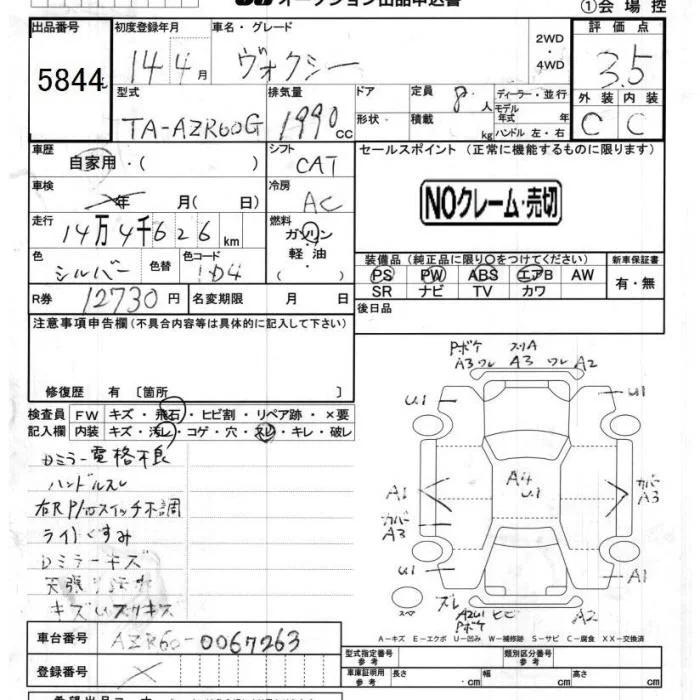 オークション出品申込書
①会場控
出品番号 初度登録年月 車名・グレード 評価点
5844 14年4月 ヴォクシー 2WD・4WD 3.5
型式 排気量 ドア 定員 8人 ディーラー・並行 外装 内装
TA-AZR60G 1990cc 形状・ 積載 kg モデル年式 年 C C
ハンドル左・右
車歴 シフト セールスポイント (正常に機能するものに限ります)
自家用・( ) CAT
車検 年 月( 日) 冷房 AC NOクレーム・売切
走行 14万4千626km 燃料 ガソリン・軽油 ( )
色 シルバー 色替 色コード 1D4 装備品 (純正品に限り○をつけてください) 新車保証書
PS PW ABS エアB AW 有・無
R券 12730円 名変期限 月 日 SR ナビ TV カワ
注意事項申告欄(不具合内容等は具体的に記入して下さい) 後日品
修復歴 有 〔箇所 〕
Pボケ スリA
A3 ワレ A3 ワレ A2
検査員 FW キズ・飛石・ヒビ割・リペア跡・×要
記入欄 内装 キズ・汚レ・コゲ・穴・スレ・キレ・破レ
U.1 U1
Dミラー電格不良
ハンドルスレ
A4
U.1
右R P/Wスイッチ不調
A1 カバーA3
ライトくすみ
カバーA3
Dミラーキズ
U1 A1
キズUスリキズ
スペ ズレ A2U1 ヒビ A2
Pボケ
車台番号 AZR60-0067263
A-キズ E-エクボ U-凹み W-補修跡 S-サビ C-腐食 XX-交換済
型式指定番号 参考 類別区分番号 参考
登録番号 車庫証明用 参考 長さ cm 幅 cm 高さ cm